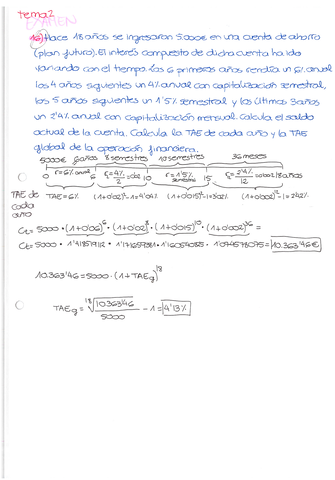 tema 2
EXAMEN
16) Hace 18 años se ingresaron 5.000€ en una cuenta de ahorro
(plan futuro). El interés compuesto de dicha cuenta ha ido
variando con el tiempo. Los 6 primeros años rendía un 6% anual
los 4 años siguientes un 4% anual con capitalización semestral,
los 5 años siguientes un 1'5% semestral y los últimos 3 años
un 2'4% anual con capitalización mensual. Calcula el saldo
actual de la cuenta. Calcula la TAE de cada año y la TAE
global de la operación financiera.
5000€ 6 años 8 semestres 10 semestres 36 meses
r=6% anual r=4%/2=0'02 r=1'5% semestral r=2'4%/12=0'002
0 6 10 15 18 años
TAE de cada año TAE=6% (1+0'02)²-1=4'04% (1+0'015)²-1=3'02% (1+0'002)¹²-1=2'42%
Ct= 5000·(1+0'06)⁶·(1+0'02)⁸·(1+0'015)¹⁰·(1+0'002)³⁶=
Ct= 5000·1'41851912·1'171659381·1'16054083·1'074578075=10.363'46€
10.363'46=5000·(1+TAEg)¹⁸
TAEg=¹⁸√10363'46/5000 -1=4'13%